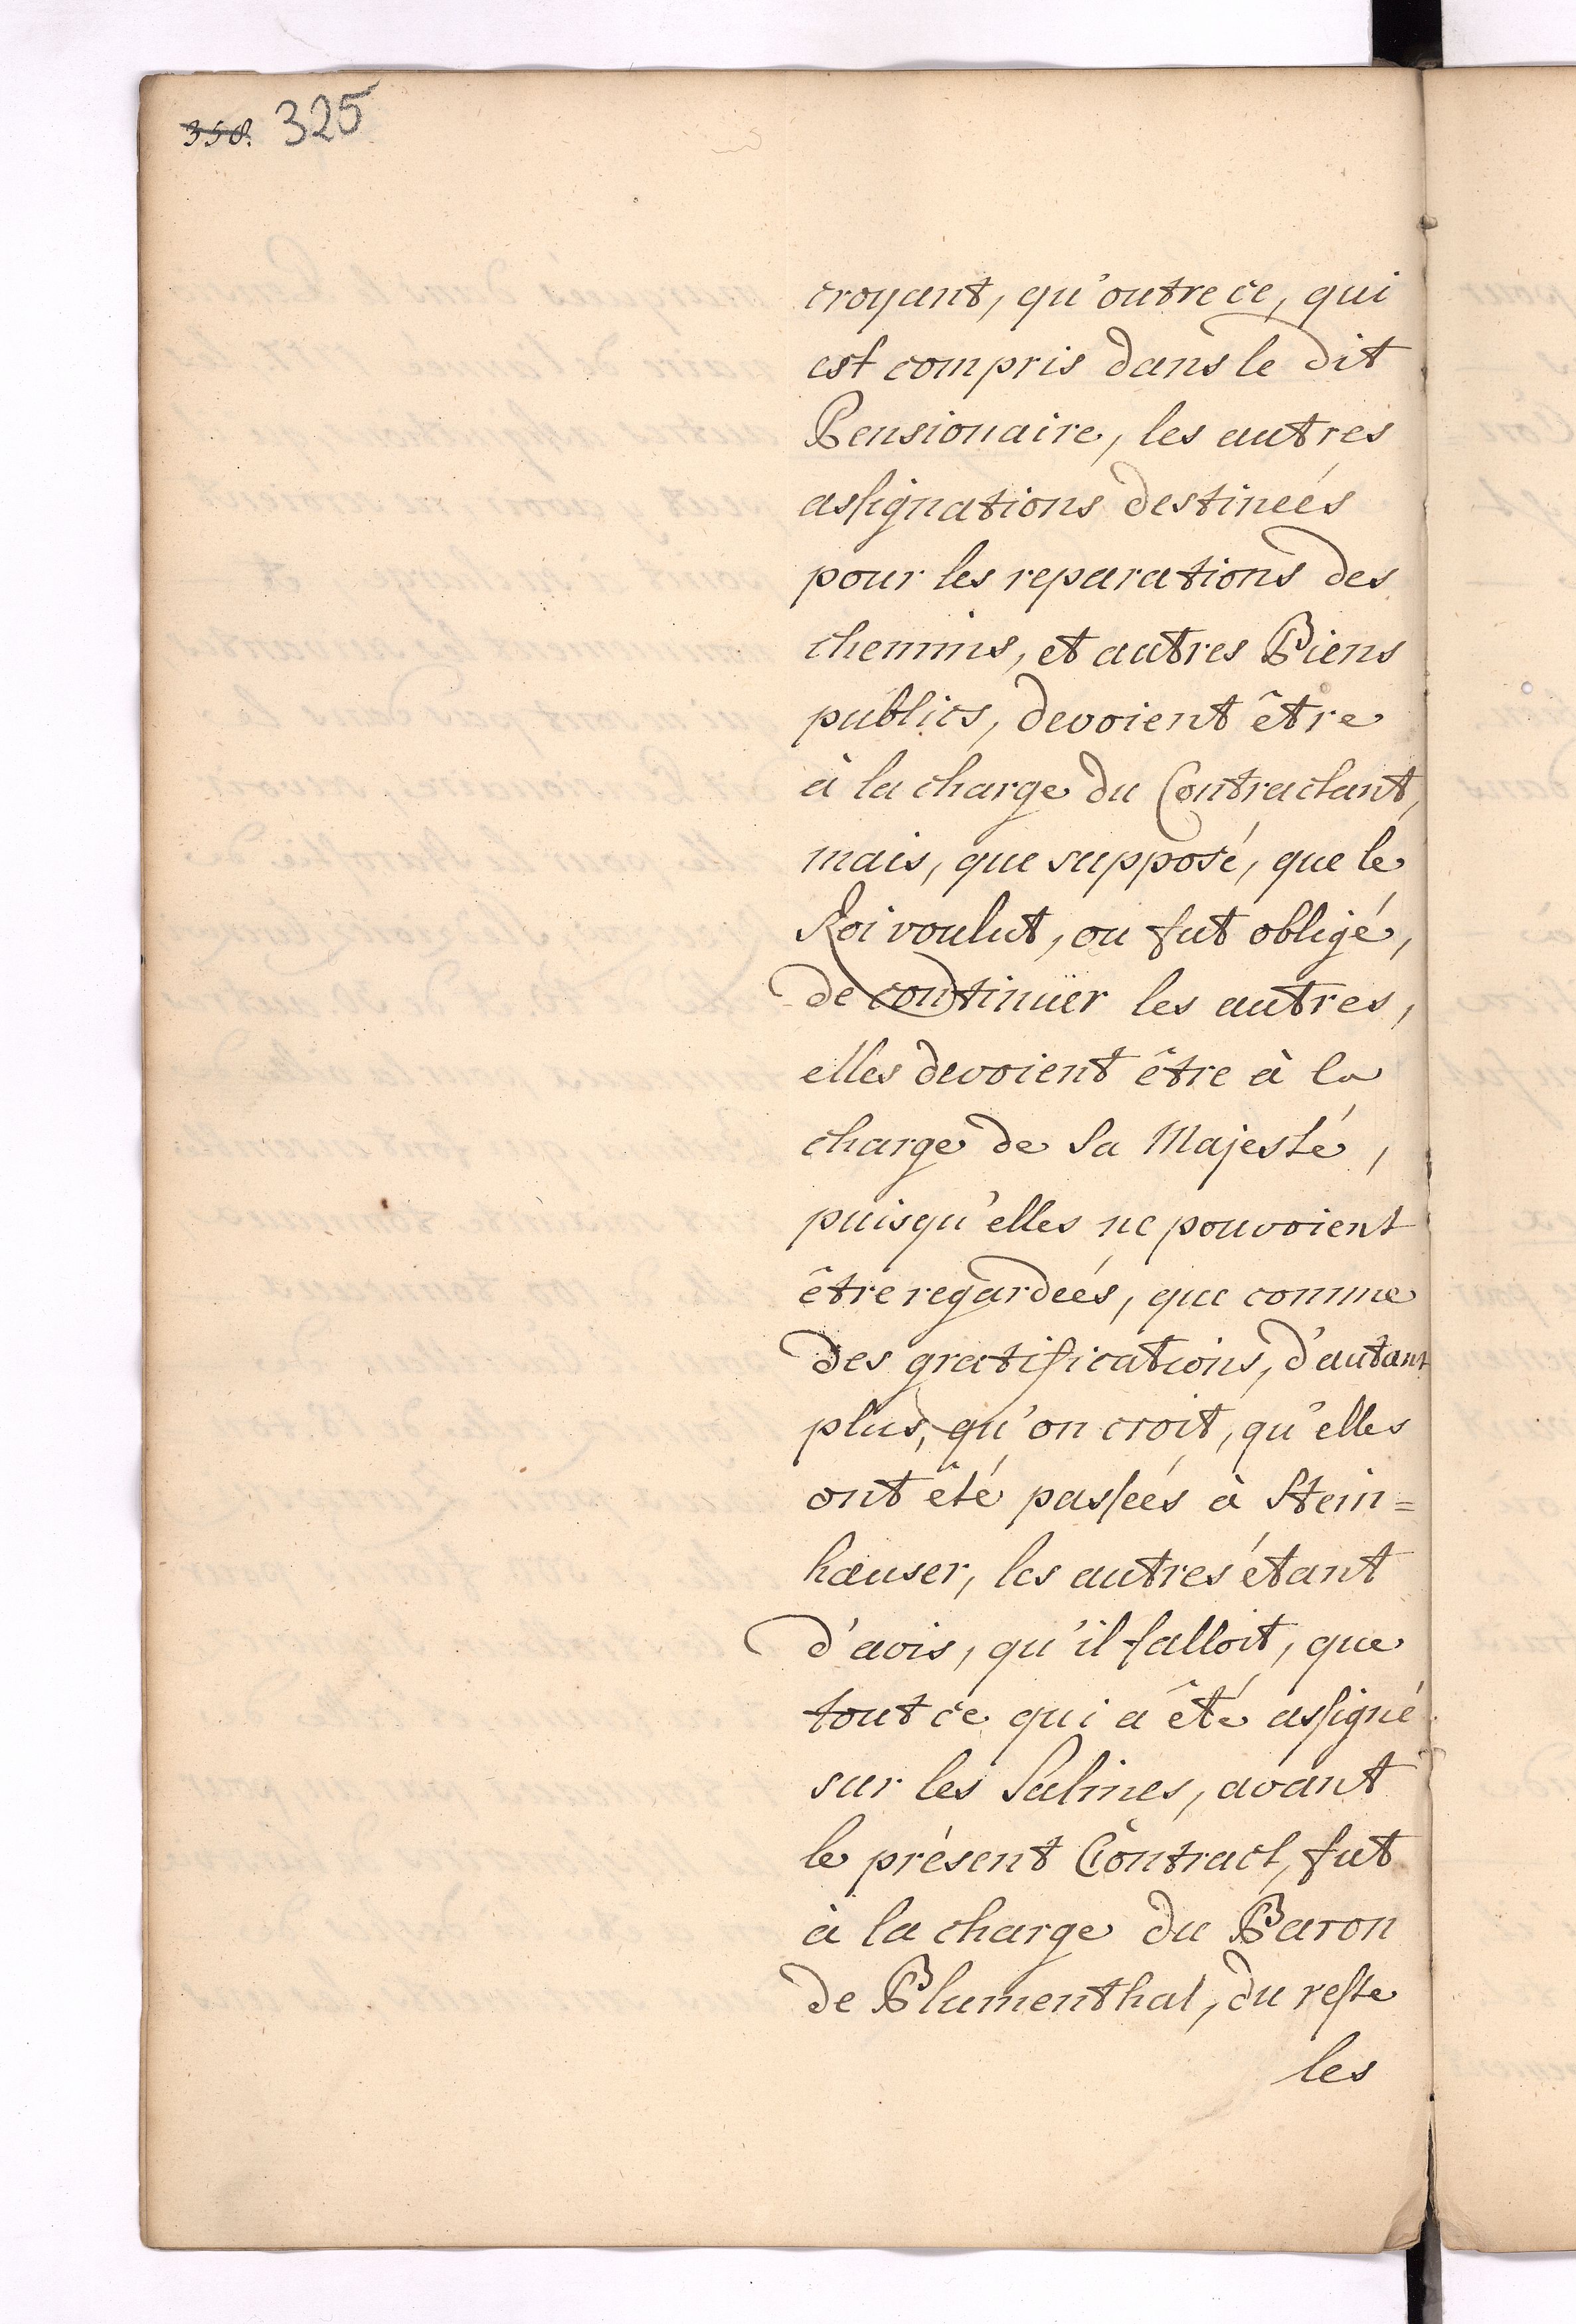 358. 325
croyant, qu'outre ce, qui
est compris dans le dit
Pensionaire, les autres
assignations destineés
pour les reparations des
chemins, et autres Biens
publics, devoient être
à la charge du Contractant,
mais, que supposé, que le
Roi voulut, ou fut obligé,
de continüer les autres,
elles devoient être à la
charge de Sa Majesté,
puisqu'elles ne pouvoient
être regardeés, que comme
des gratifications, d'autant
plus, qu'on croit, qu'elles
ont êté passeés à Stein=
hæuser, les autres étant
d'avis, qu'il falloit, que
tout ce qui a êté assigné
sur les Salines, avant
le présent Contract, fut
à la charge du Baron
de Blumenthal, du reste
les